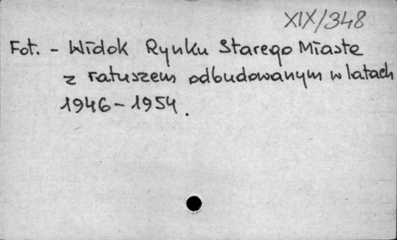 XIX/348
Fot. - Widok Rynku Starego Miasta
z ratuszem odbudowanym w latach
1946-1954.